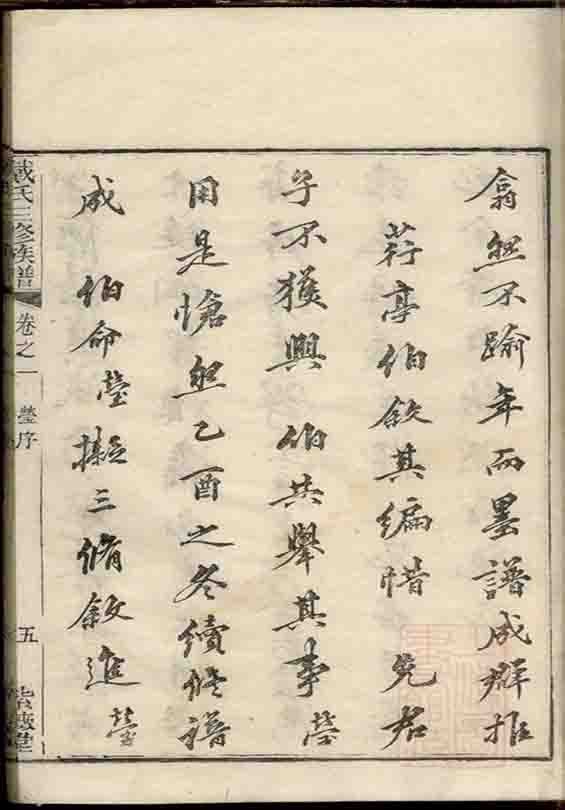 翕然不踰年而墨譜成羣推
荇亭伯敘其編惜 先君
子不獲與 伯共舉其事瑩
用是愴然乙酉之冬續修譜
成 伯命瑩擬三脩敘進瑩
戴氏三修族譜 卷之一 瑩序 五